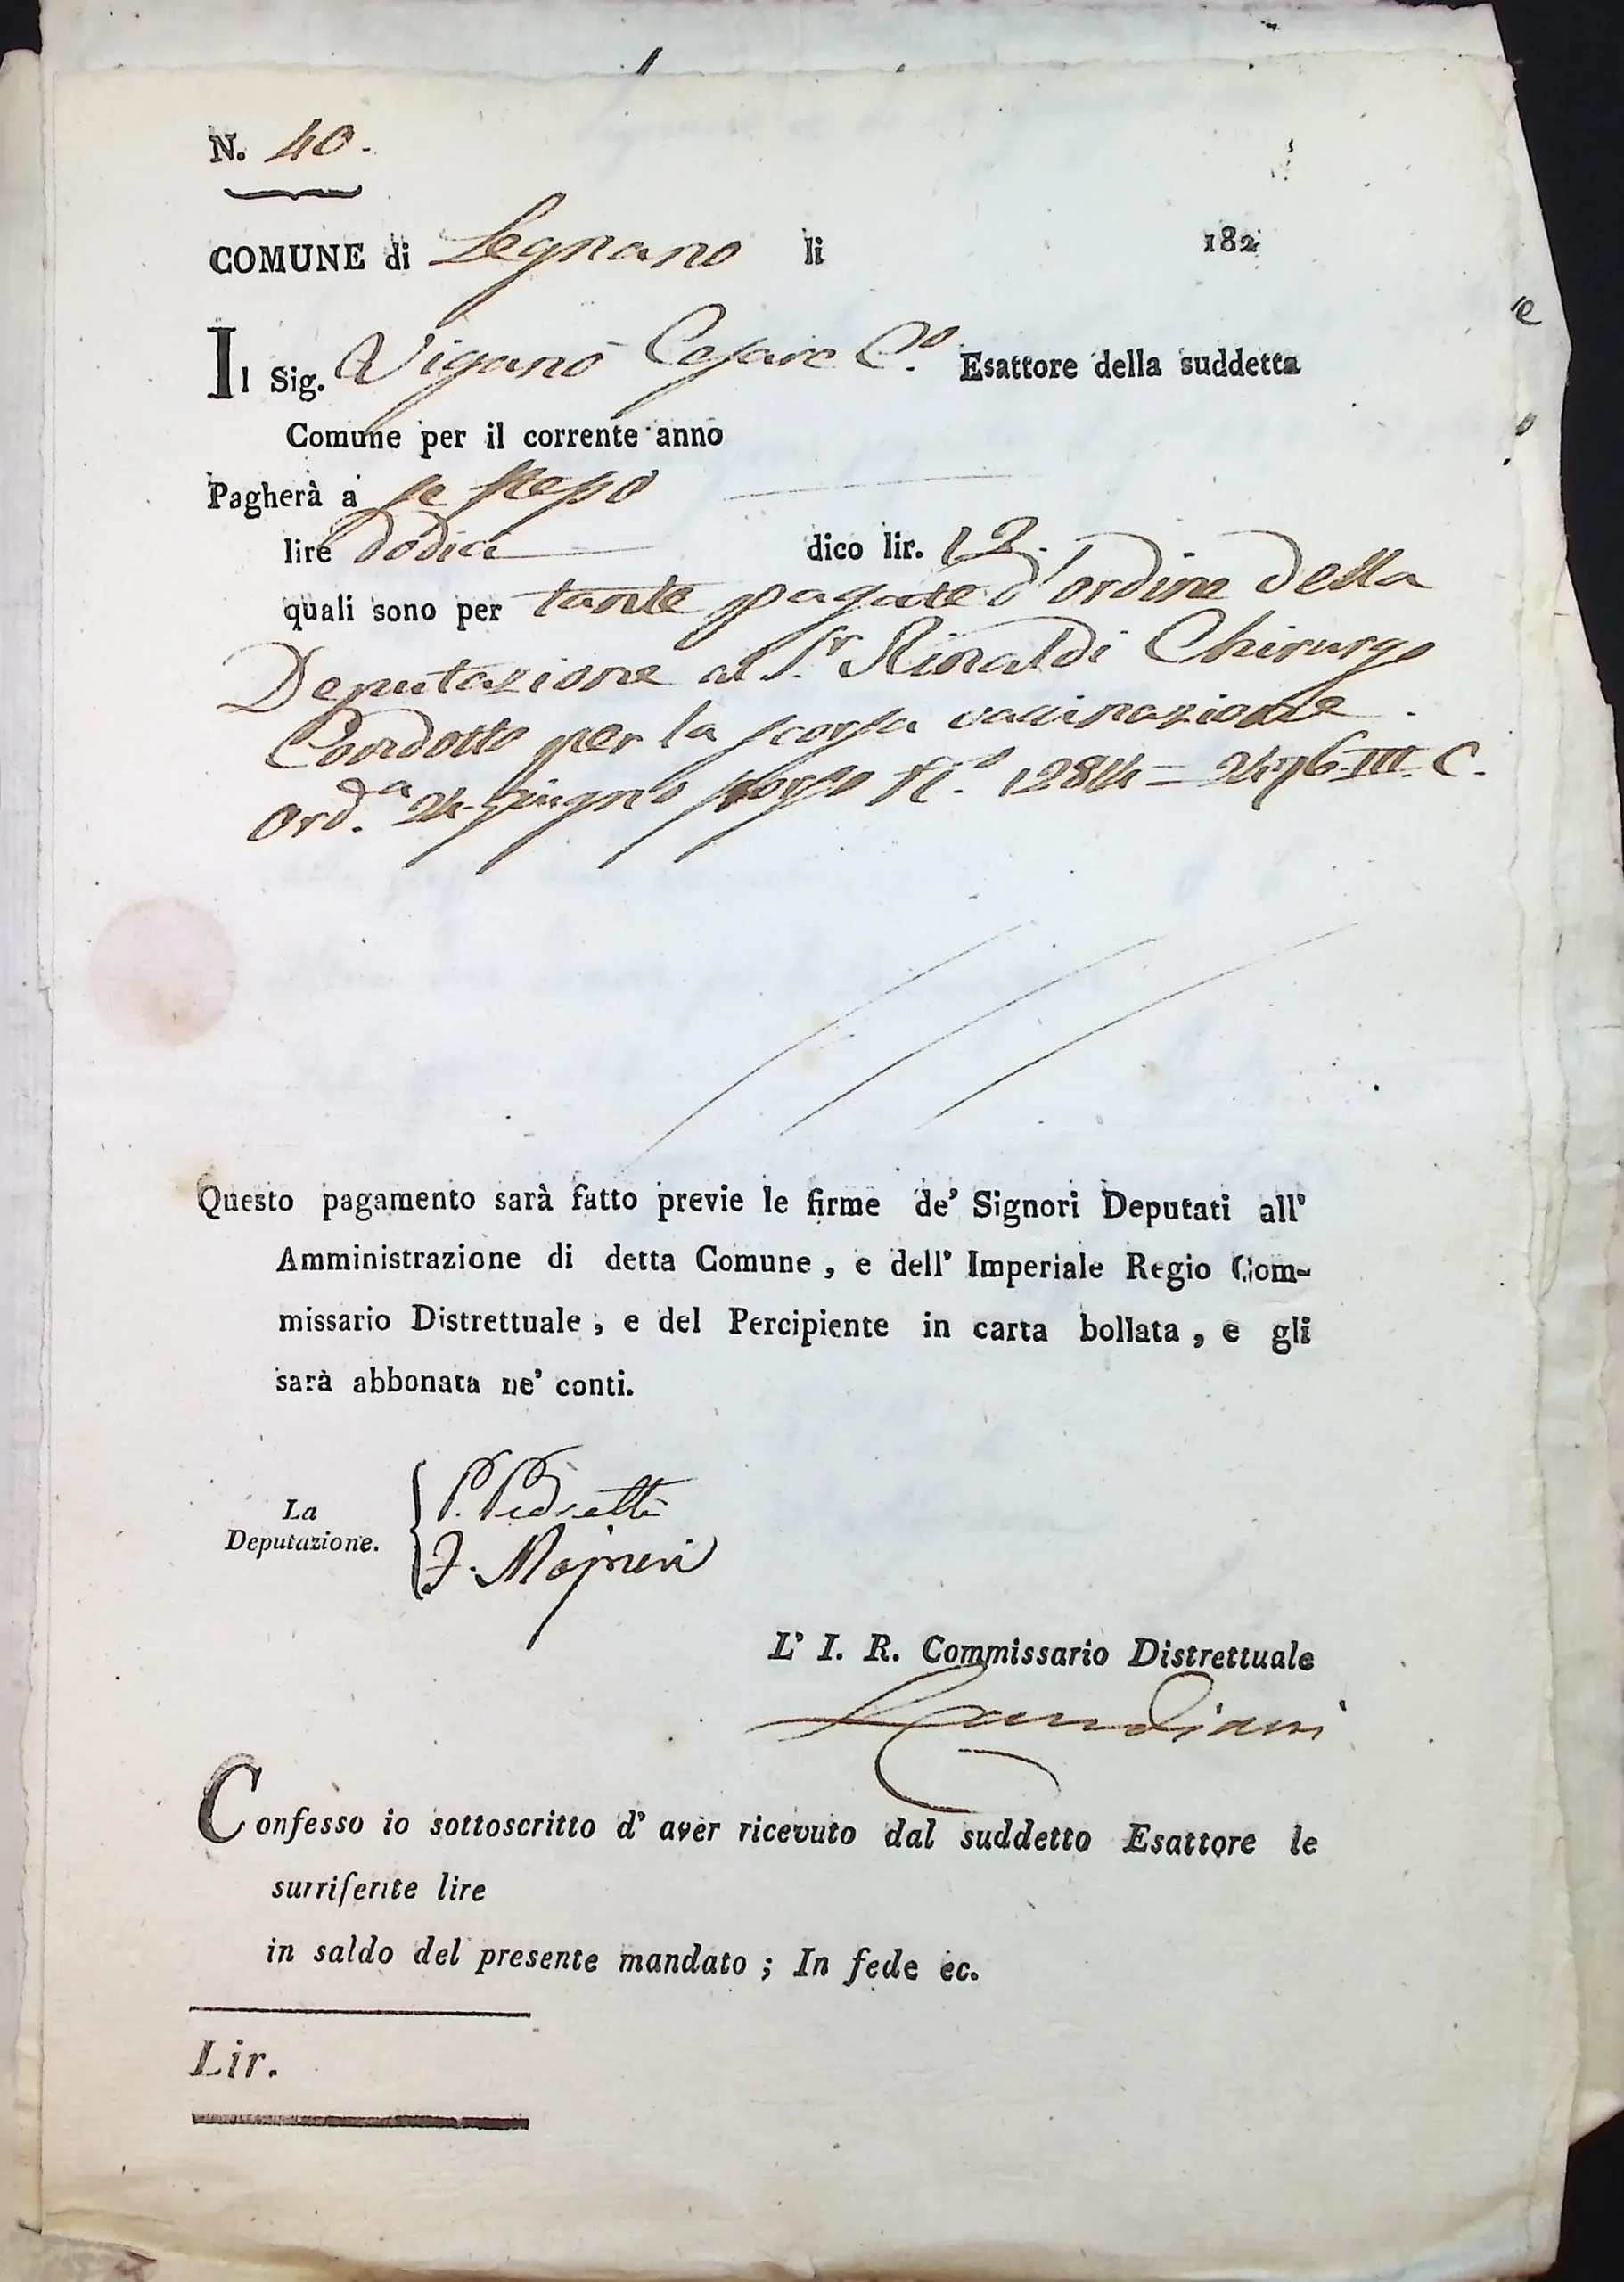 N. 40.
COMUNE di Legnano li 182
Il Sig. Viganò Cesare C.º Esattore della suddetta
Comune per il corrente anno
Pagherà a se stesso
lire dodici dico lir. 12.
quali sono per tante pagate d'ordine della
Deputazione al S.r Rinaldi Chirurgo
Condotto per la scorsa vaccinazione.
Ord.a 24 giugno scorso N.º 1284 = 2476 III. C.
Questo pagamento sarà fatto previe le firme de' Signori Deputati all'
Amministrazione di detta Comune, e dell' Imperiale Regio Com-
missario Distrettuale, e del Percipiente in carta bollata, e gli
sarà abbonata ne' conti.
La
Deputazione.
P. Pedretti
F. Majneri
L' I. R. Commissario Distrettuale
Landiani
Confesso io sottoscritto d' aver ricevuto dal suddetto Esattore le
surriferite lire
in saldo del presente mandato; In fede ec.
Lir.